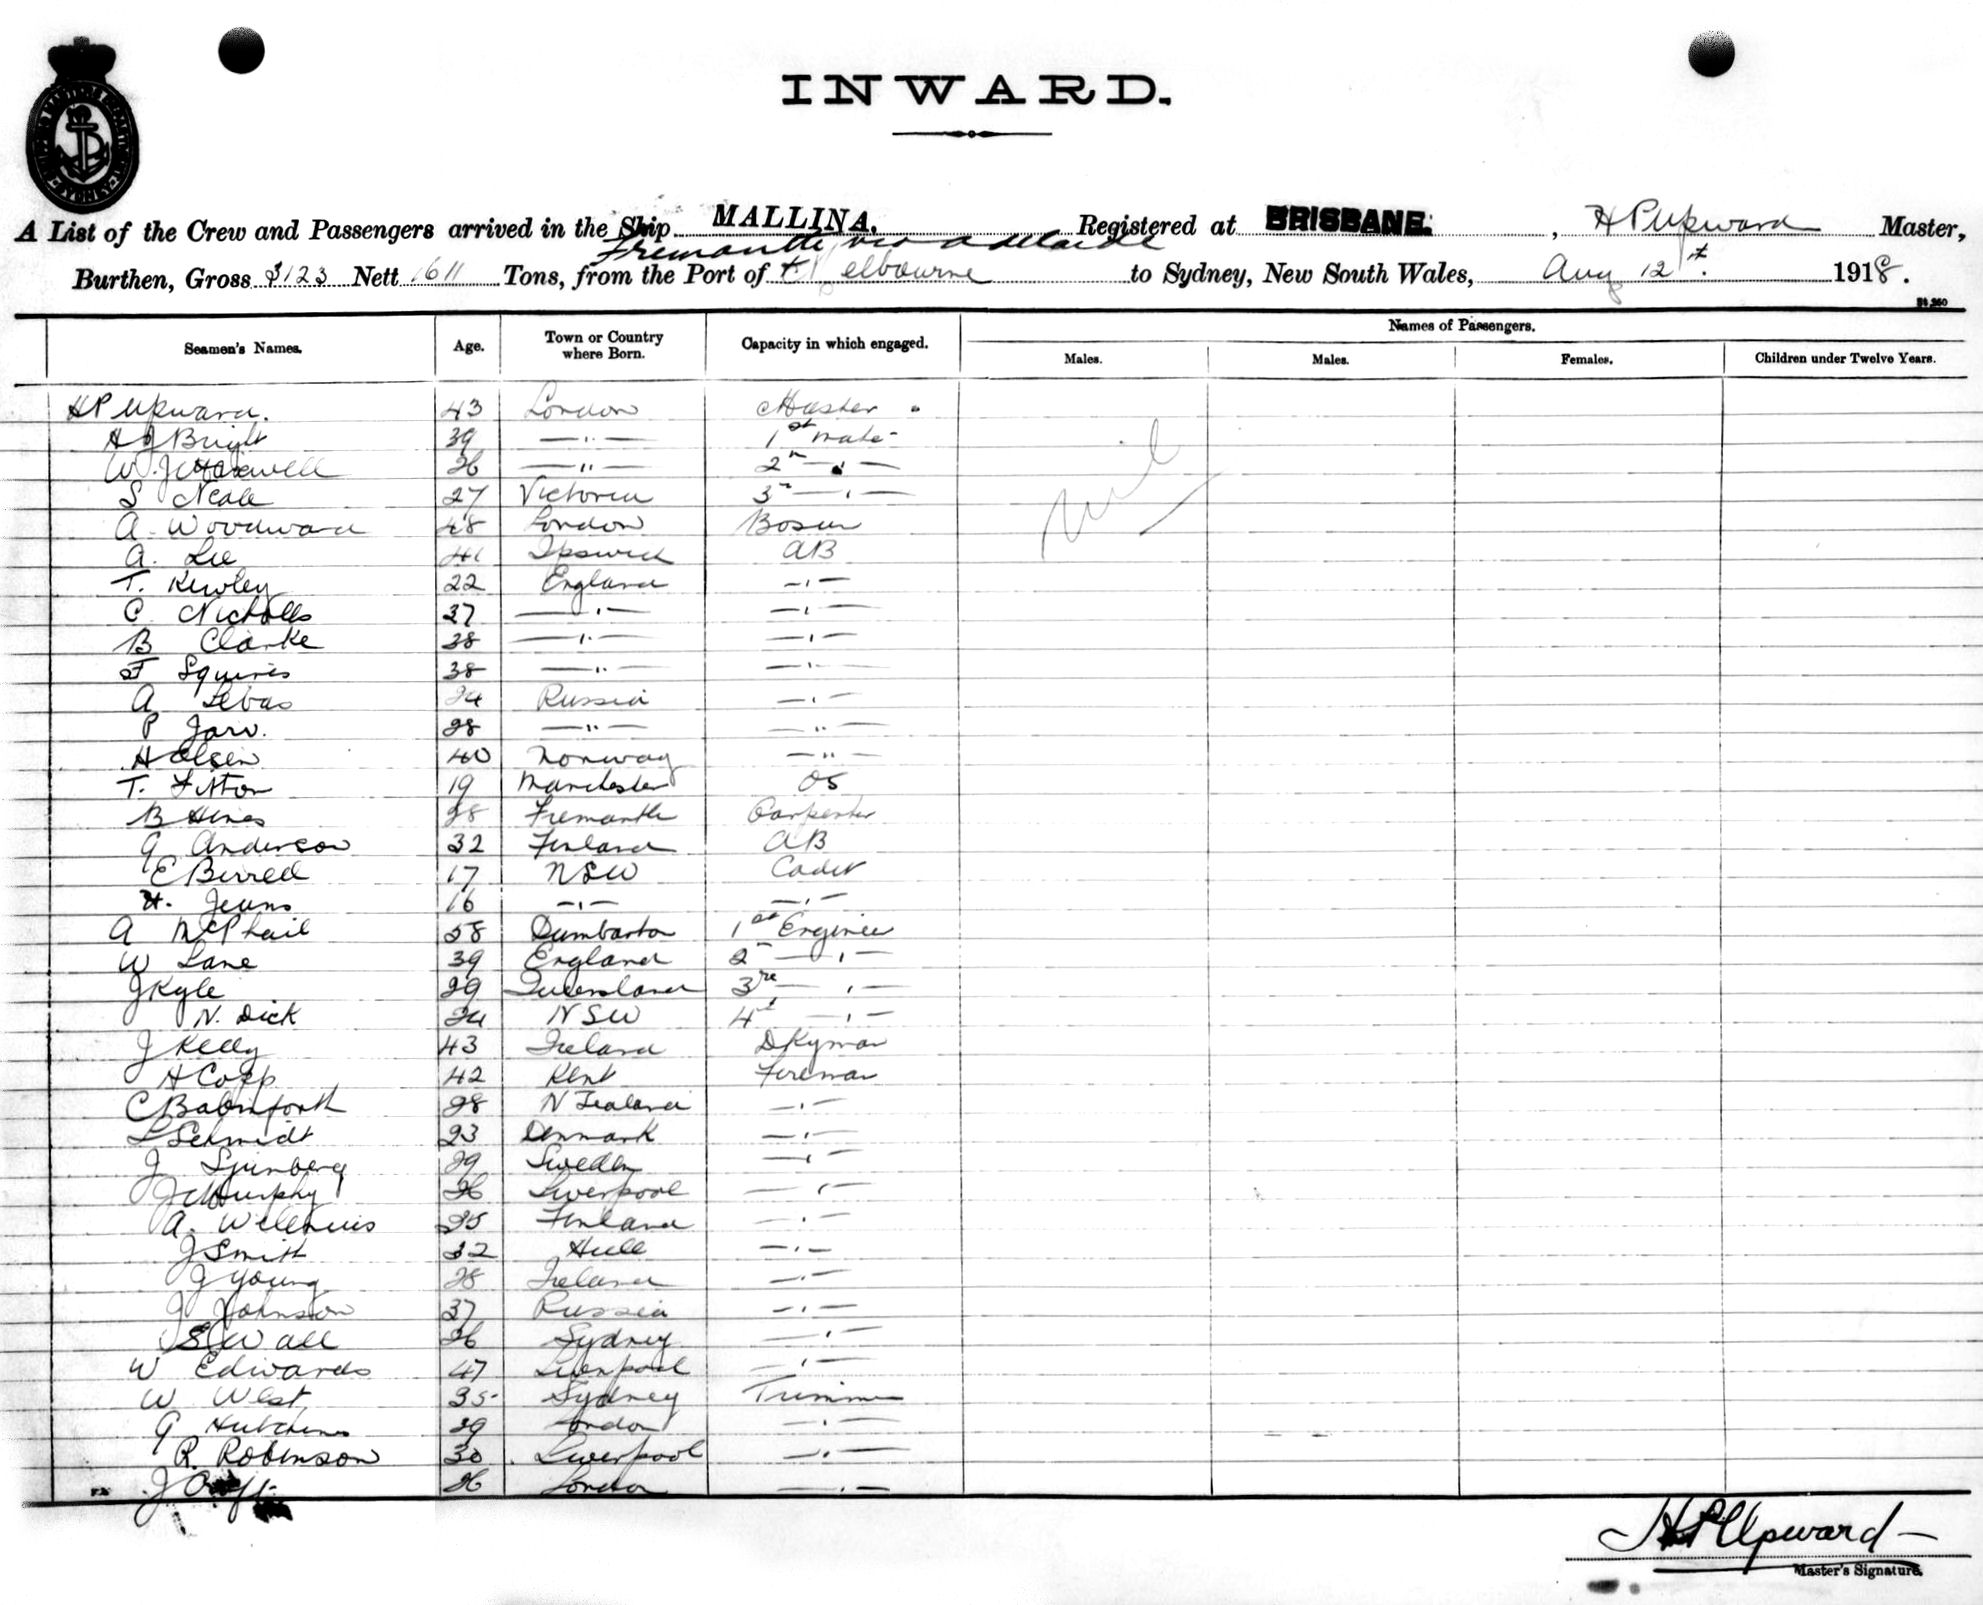 INWARD.
A List of the Crew and Passengers arrived in the Ship MALLINA. Registered at BRISBANE. , H P Upward Master,
Fremantle via Adelaide
Burthen, Gross 3123 Nett 1611 Tons, from the Port of & Melbourne to Sydney, New South Wales, Aug 12th. 1918.
Names of Passengers.
Seamen's Names. Age. Town or Country where Born. Capacity in which engaged. Males. Males. Females. Children under Twelve Years.
H P Upward. 43 London Master
H J Bright 39 — " — 1st mate
W. J. Maxwell 26 — " — 2n — " —
S Neale 27 Victoria 3 — " —
A Woodward 48 London Bosun
A. Lee 41 Ipswich AB
T. Kewley 22 England — " —
C Nicholls 37 — " — — " —
B Clarke 38 — " — — " —
F Squires 38 — " — — " —
A 24 Russia — " —
P 28 — " — — " —
H Olsen 40 Norway — " —
T. Fitton 19 Manchester OS
B Hines 28 Fremantle Carpenter
G Anderson 32 Finland AB
E Birrell 17 NSW Cadet
H. Jeans 16 — " — — " —
A McPhail 58 Dumbarton 1st Engineer
W Lane 39 England 2 — " —
J Kyle 29 Queensland 3rd — " —
N. Dick 24 NSW 4th — " —
J Kelly 43 Ireland DKyman
H Copp 42 Kent Fireman
C Bamforth 28 N Zealand — " —
L Schmidt 23 Denmark — " —
J 29 Sweden — " —
J Murphy 26 Liverpool — " —
A. Wilenius 25 Finland — " —
J Smith 32 Hull — " —
J Young 28 Ireland — " —
J Johnson 37 Russia — " —
S Wall 26 Sydney — " —
W Edwards 47 Liverpool — " —
W West 35 Sydney Trimmer
G Hutchins 29 London — " —
R. Robinson 30 Liverpool — " —
J 26 London — " —
nil
H P Upward
Master's Signature.